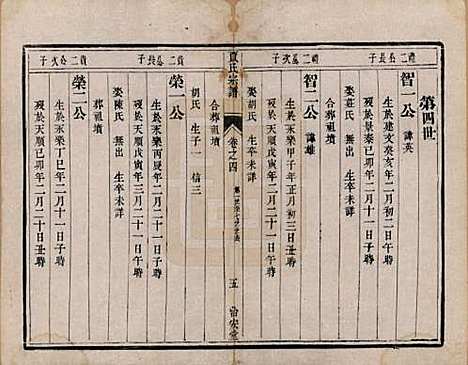 第四世
禮二公長子
智一公 諱英
生於建文癸亥年二月初二日午時
歿於景泰三年二月二十一日丑時
娶莊氏 無出 生卒未詳
合葬祖墳
禮二公次子
智二公 諱雄
生於永樂甲子年正月初三日午時
歿於天順戊寅年二月二十一日午時
娶胡氏 生卒未詳
盧氏宗譜
卷之四
五
治安堂
胡氏 生子一 信三
合葬祖墳
貴二公長子
榮一公
生於永樂丙辰年二月二十一日丑時
歿於天順戊寅年三月二十一日午時
娶陳氏 無出 生卒未詳
葬祖墳
貴二公次子
榮二公
生於永樂丁巳年二月二十一日午時
歿於天順己卯年二月二十日丑時